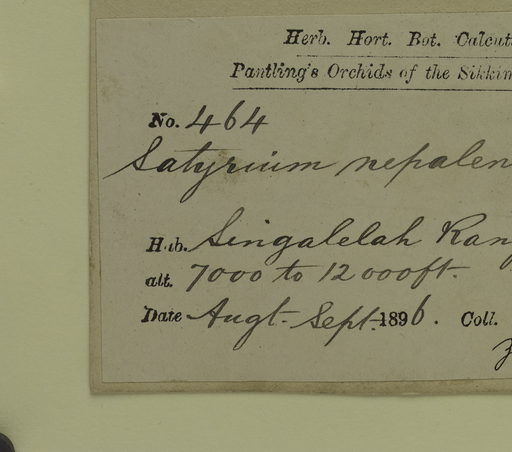 Herb. Hort. Bot. Calcut
Pantling's Orchids of the Sikkim
No. 464
Satyrium nepalen
Hab. Singalelah Ran
alt. 7000 to 12000ft.
Date Augt. Sept. 1896. Coll.